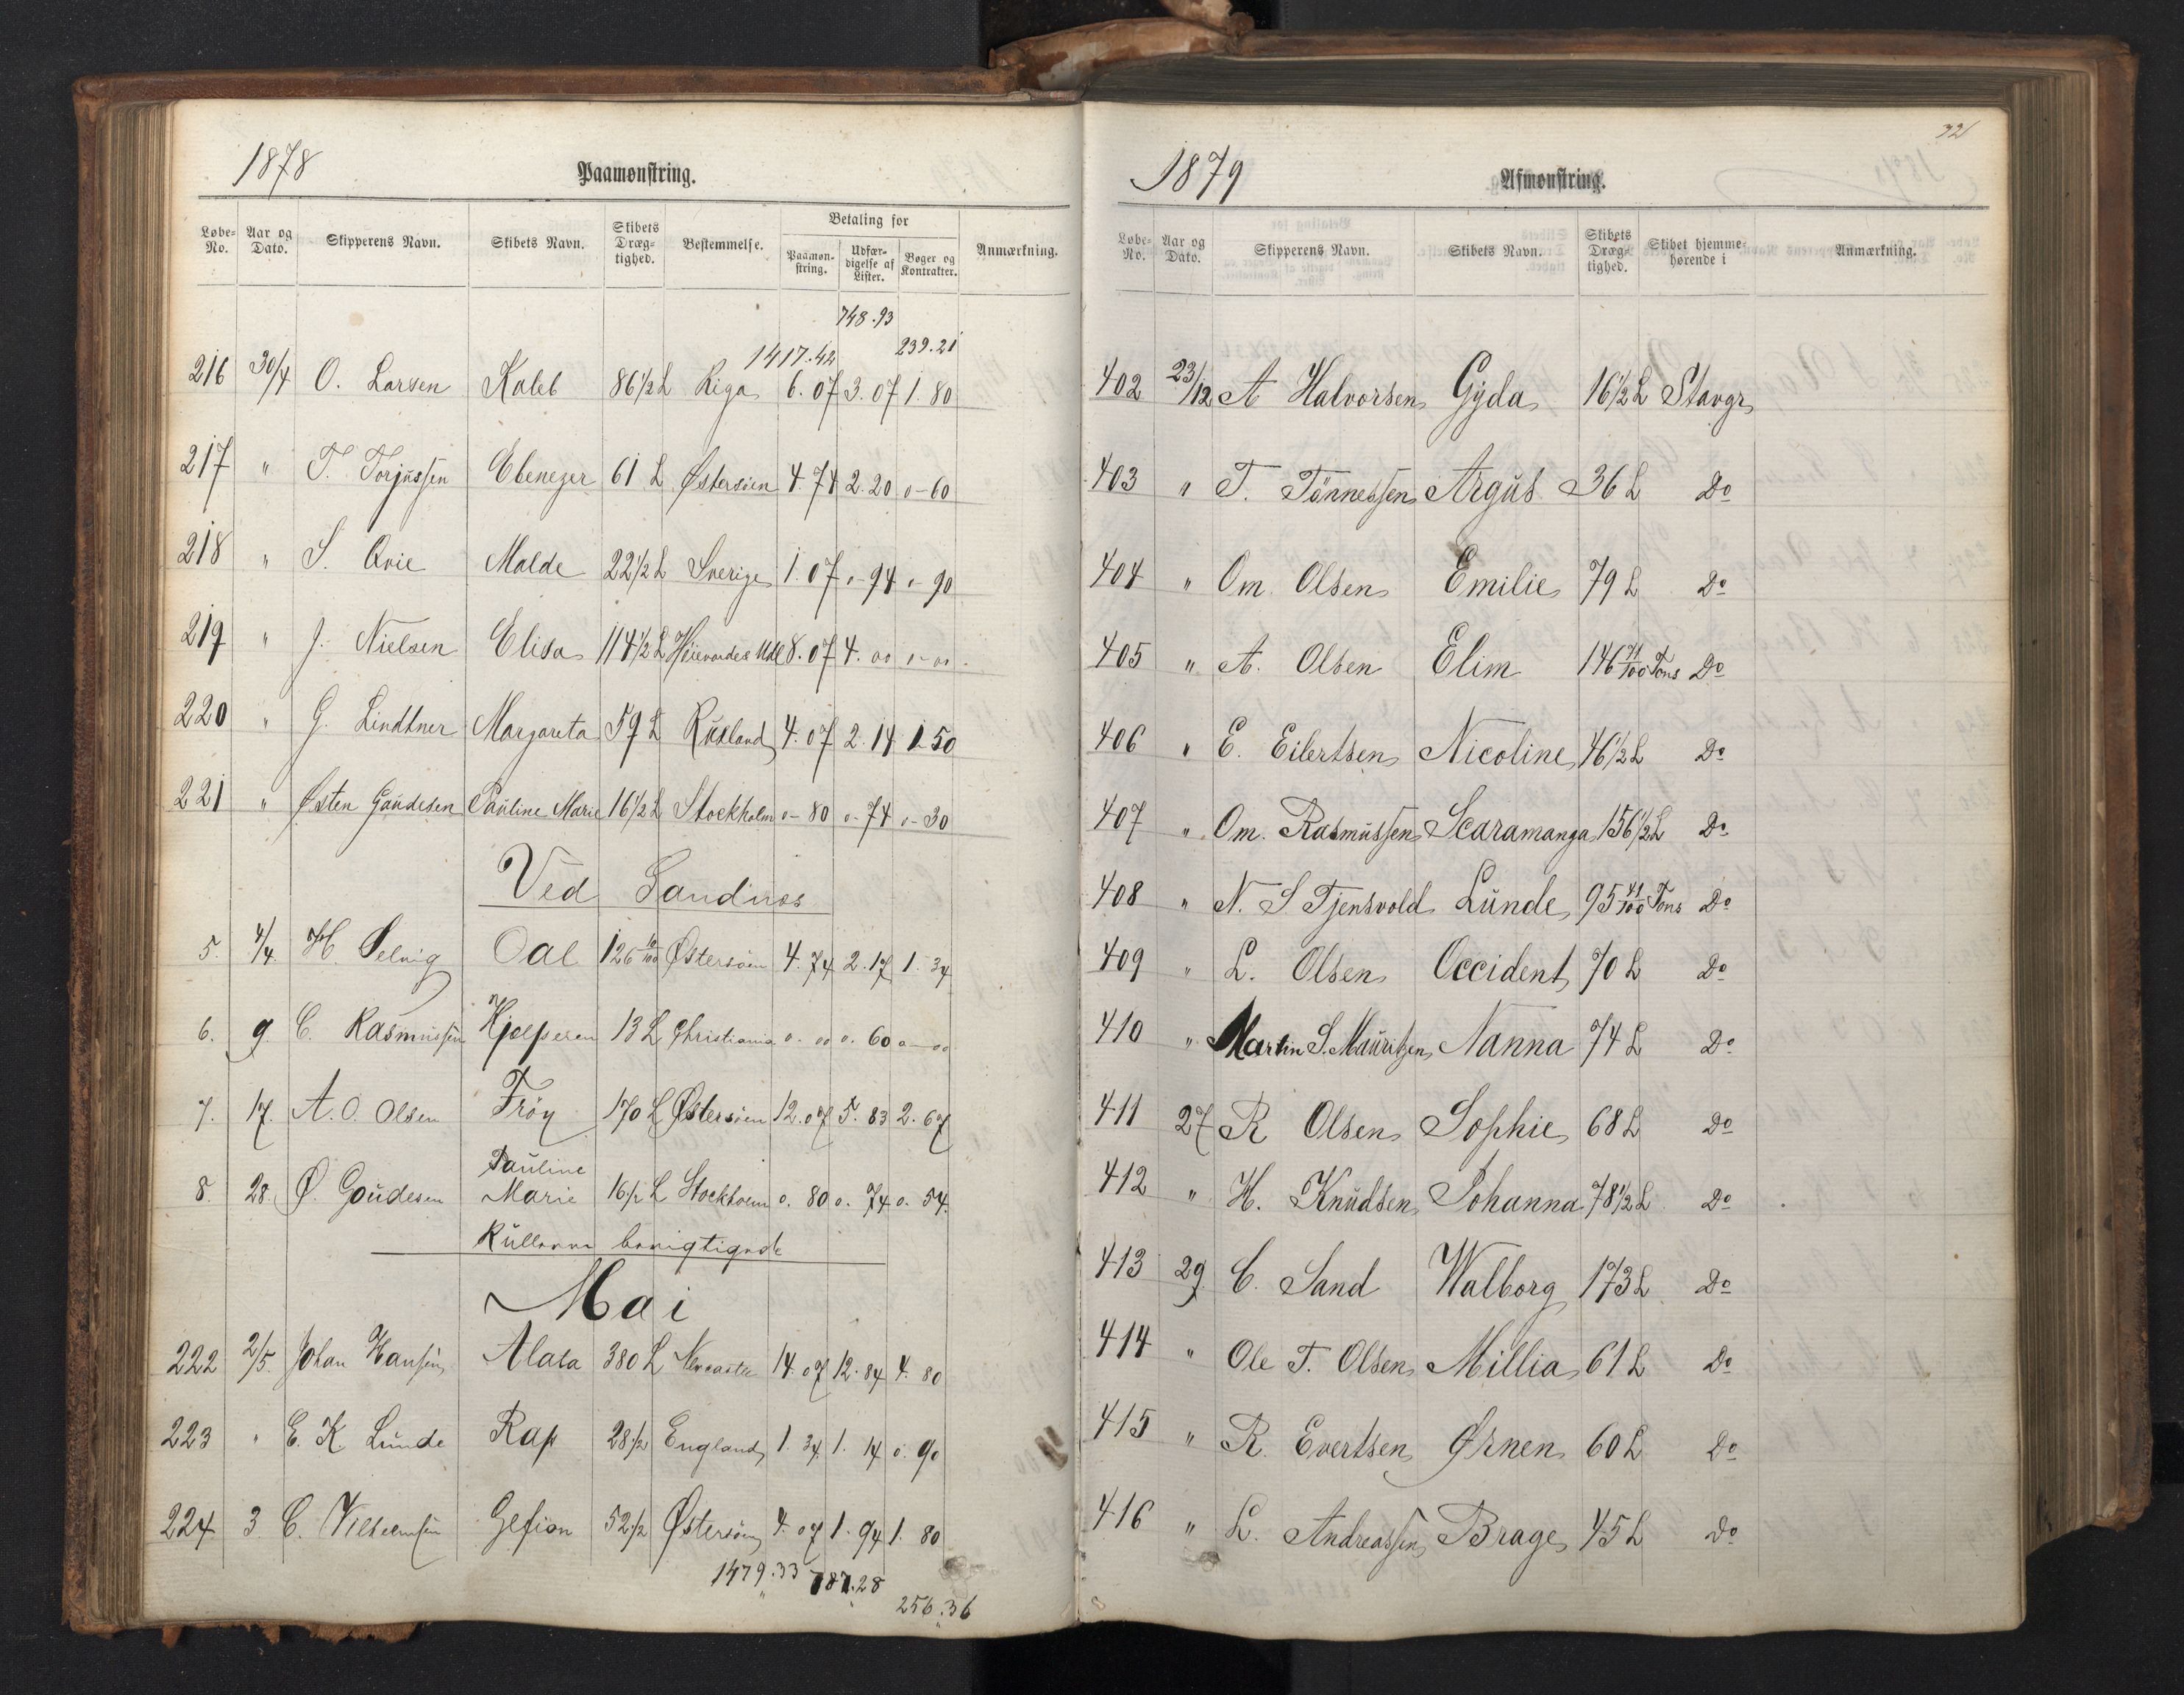 1878
Paamønstring.
Løbe-No. Aar og Dato. Skipperens Navn. Skibets Navn. Skibets Dræg-tighed. Bestemmelse. Betaling for Paamøn-string. Udfær-digelse af Lister. Bøger og Kontrakter. Anmærkning.
748.93
1417.42 239.21
216 30/4 O. Larsen Kaleb 86 1/2 L Riga 6.07 3.07 1.80
217 " T. Torjussen Ebenezer 61 L Østersöen 4.74 2.20 0-60
218 " S. Qvie Malde 22 1/2 L Sverige 1.07 0-94 0-90
219 " J. Nielsen Elisa 114 1/2 L 8.07 4.00 0-00
220 " G. Lindtner Margareta 59 L Rusland 4.07 2.14 1.50
221 " Østen Gaudesen Pauline Marie 16 1/2 L Stockholm 0-80 0-74 0-30
Ved Sandnes
5. 4/4. H. Selvig Oal 126 10/100 Østersöen 4.74 2.17 1.34
6. 9. C. Rasmussen Hjelperen 13 L Christiania 0.00 0.60 0-00
7. 17. A. O. Olsen Fröy 170 L Østersöen 12.07 5.83 2.67
8. 28. Ø. Goudesen Pauline Marie 16 1/2 L Stockholm 0.80 0.74 0.54.
Rullerne
Mai
222 2/5. Johan Hansen Alata 380 L Newcastle 14.07 12.84 4.80
223 " E. K. Lunde Rap 28 1/2 England 1.34 1.14 0.90
224 3 C. Vilhelmsen Gefion 52 1/2 Østersöen 4.07 1.94 1.80
1479.33 787.28
256.36
72
1879
Afmønstring.
Løbe-No. Aar og Dato. Skipperens Navn. Skibets Navn. Skibets Dræg-tighed. Skibet hjemme-hørende i Anmærkning.
402 23/12 A Halvorsen Gyda 16 1/2 L Stavgr
403 " T. Tönnessen Argus 36 L Do
404 " Om. Olsen Emilie 79 L Do
405 " A. Olsen Elim 146 71/100 Tons Do
406 " E. Eilertsen Nicoline 46 1/2 L Do
407 " Om. Rasmussen Scaramanga 156 1/2 L Do
408 " N. S Tjensvold Lunde 95 41/100 Tons Do
409 " L. Olsen Occident 70 L Do
410 " Martin S. Mauritzen Nanna 74 L Do
411 27 R Olsen Sophie 68 L Do
412 " H. Knudsen Johanna 78 1/2 L Do
413 29 C. Sand Walborg 173 L Do
414 " Ole T. Olsen Millia 61 L Do
415 " R. Evertsen Ørnen 60 L Do
416 " L. Andreassen Brage 45 L Do